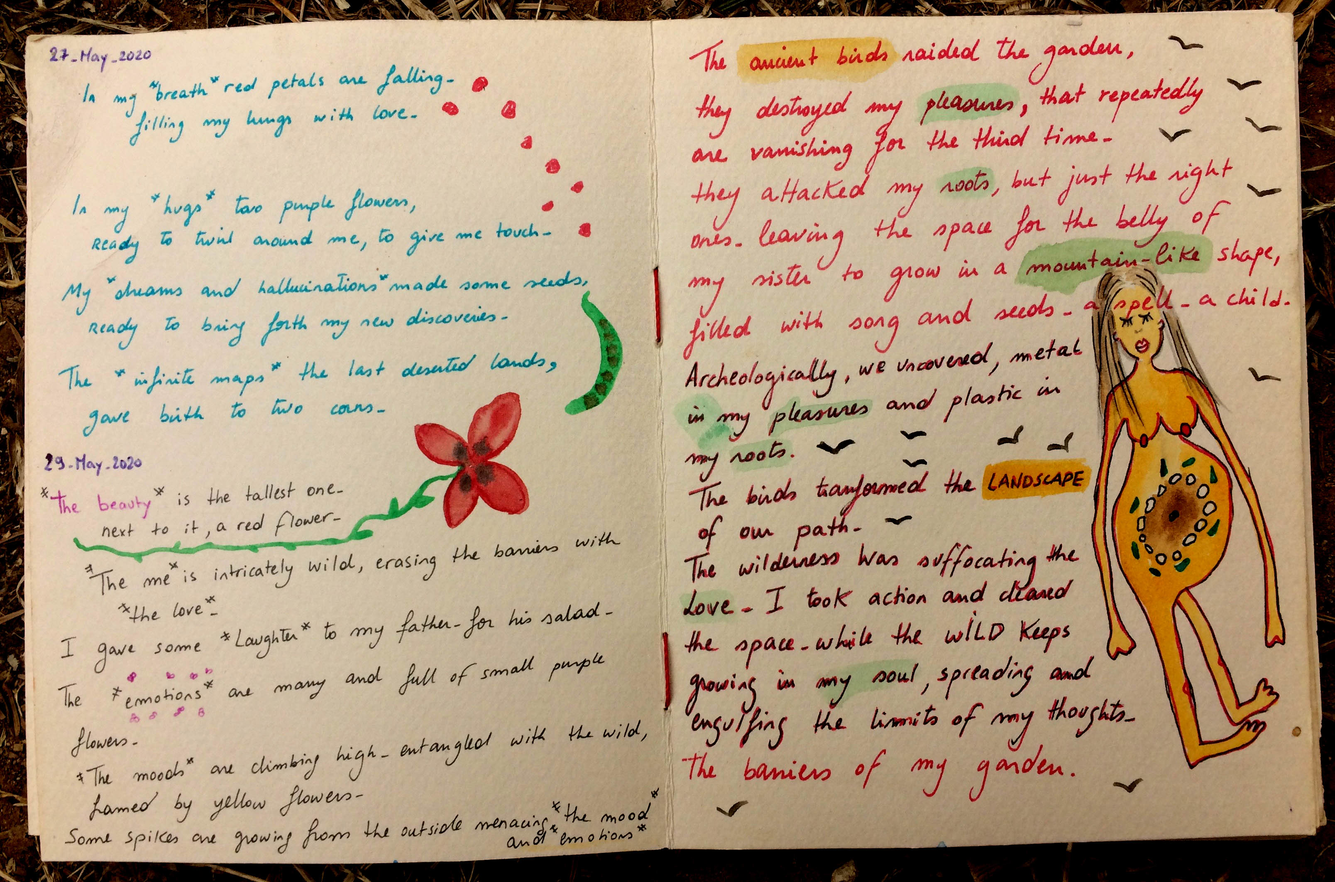 27_May_2020
In my *breath* red petals are falling_
filling my lungs with love_
In my *hugs* two purple flowers,
Ready to twirl around me, to give me touch_
My *dreams and hallucinations* made some seeds,
Ready to bring forth my new discoveries_
The *infinite maps* the last deserted lands,
gave birth to two corns_
29_May_2020
*The beauty* is the tallest one_
next to it, a red flower_
*The me* is intricately wild, erasing the barriers with
*the love*_
I gave some *Laughter* to my father_ for his salad_
The *emotions* are many and full of small purple
flowers_
*The moods* are climbing high_ entangled with the wild,
framed by yellow flowers_
Some spikes are growing from the outside menacing *the mood*
and *emotions*
The ancient birds raided the garden,
they destroyed my pleasures, that repeatedly
are vanishing for the third time_
they attacked my roots, but just the right
ones_ leaving the space for the belly of
my sister to grow in a mountain-like shape,
filled with song and seeds_ a spell_ a child.
Archeologically, we uncovered, metal
in my pleasures and plastic in
my roots.
The birds tranformed the LANDSCAPE
of our path_
The wilderness was suffocating the
Love_ I took action and cleared
the space_ while the WILD keeps
growing in my soul, spreading and
engulfing the limits of my thoughts_
The barriers of my garden.